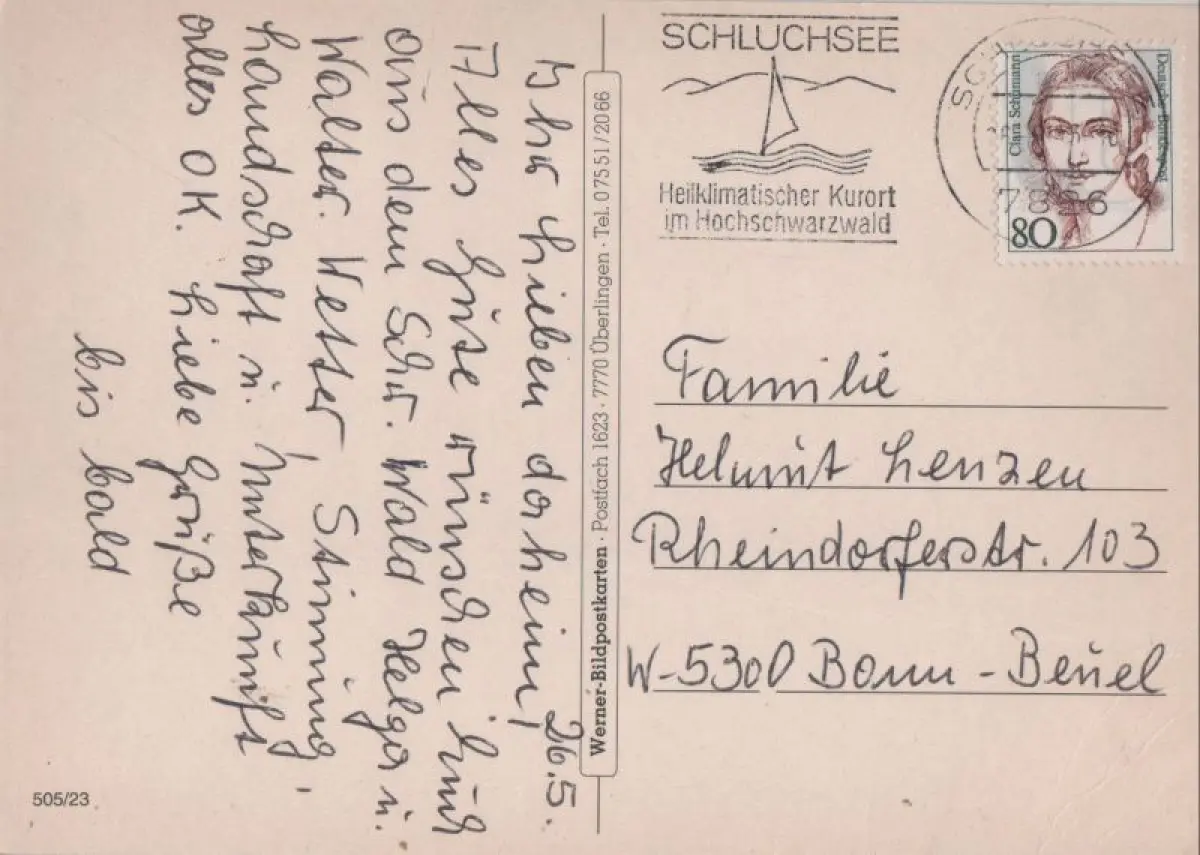 Ihr Lieben daheim! 26.5.
Alles Gute wünschen Euch
aus dem Schw. Wald Helga u.
Walter. Wetter, Stimmung,
Landschaft u. Unterkunft
alles OK. Liebe Grüße
bis bald
505/23
Werner-Bildpostkarten · Postfach 1623 · 7770 Überlingen · Tel. 07551/2066
SCHLUCHSEE
Heilklimatischer Kurort
im Hochschwarzwald
7826
Clara Schumann
Deutsche Bundespost
80
Familie
Helmut Lenzen
Rheindorferstr. 103
W-5300 Bonn-Beuel